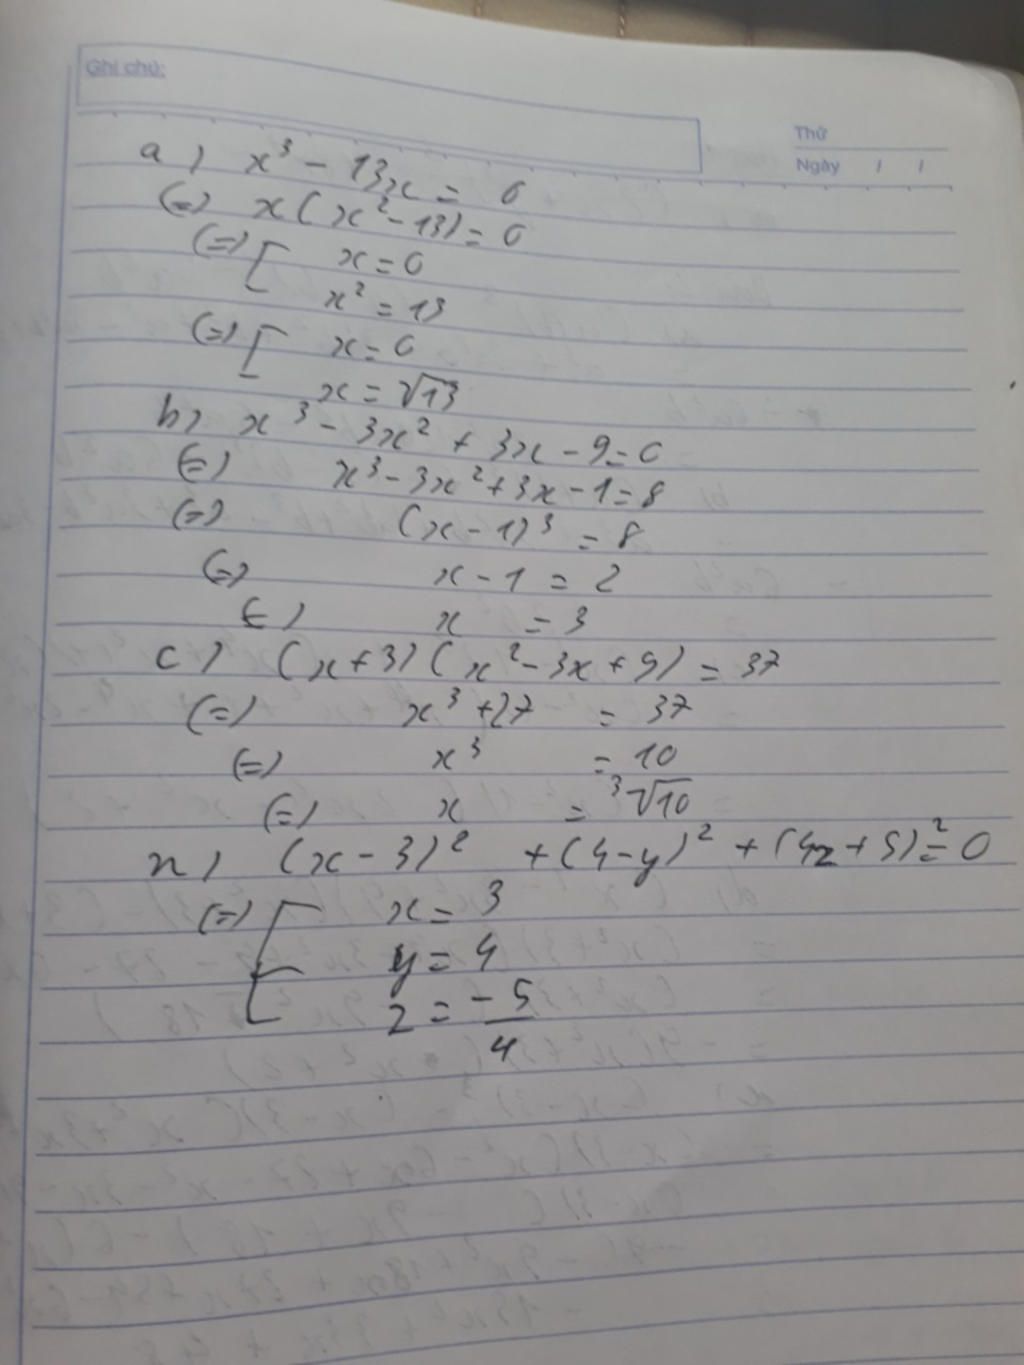 Ghi chú:
Thứ
Ngày / /
a) x³ - 13x = 0
(=) x(x² - 13) = 0
(=) [ x = 0
x² = 13
(=) [ x = 0
x = √13
b) x³ - 3x² + 3x - 9 = 0
(=) x³ - 3x² + 3x - 1 = 8
(=) (x - 1)³ = 8
(=) x - 1 = 2
(=) x = 3
c) (x + 3)(x² - 3x + 9) = 37
(=) x³ + 27 = 37
(=) x³ = 10
(=) x = ³√10
n) (x - 3)² + (4 - y)² + (4z + 5)² = 0
(=) [ x = 3
y = 4
z = -5/4